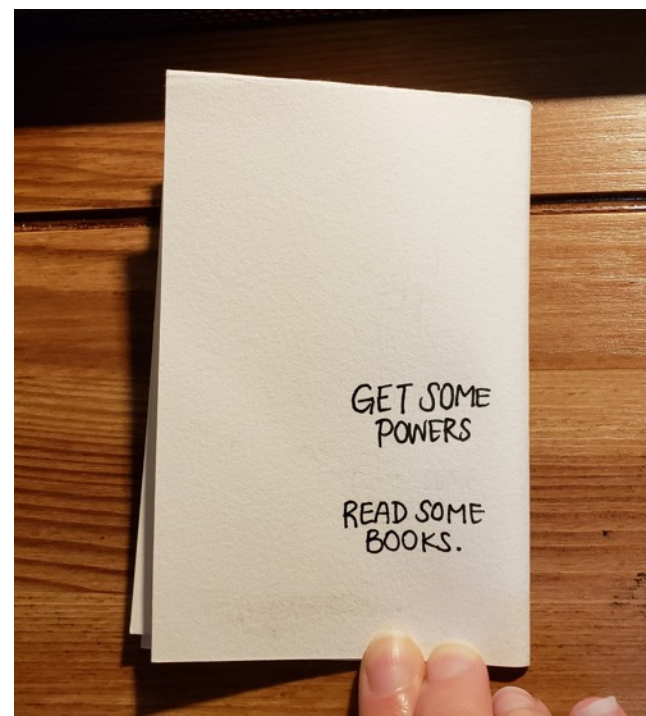 GET SOME
POWERS
READ SOME
BOOKS.